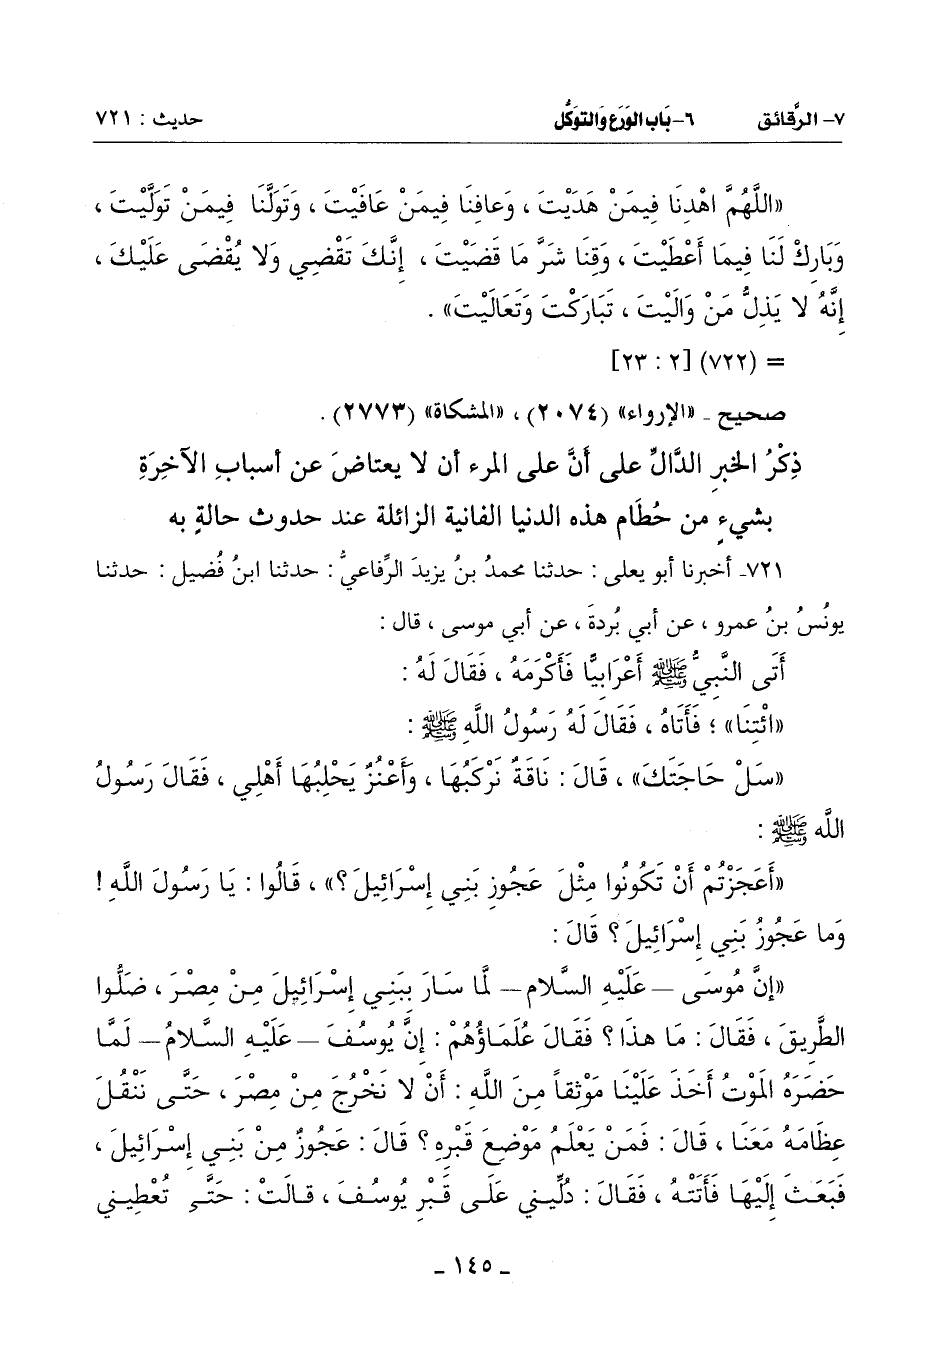 ٧- الرَّقائق ٦- بَاب الوَرَع وَالتوَكُّل حديث : ٧٢١
«اللَّهُمَّ اهْدِنَا فِيمَنْ هَدَيْتَ ، وَعافِنَا فِيمَنْ عَافَيْتَ ، وَتَوَلَّنَا فِيمَنْ تَوَلَّيْتَ ،
وَبَارِكْ لَنَا فِيمَا أَعْطَيْتَ ، وَقِنَا شَرَّ مَا قَضَيْتَ ، إِنَّكَ تَقْضِي وَلا يُقْضَى عَلَيْكَ ،
إِنَّهُ لا يَذِلُّ مَنْ وَالَيْتَ ، تَبَارَكْتَ وَتَعَالَيْتَ» .
= (٧٢٢) [٢ : ٢٣]
صحيح ـ «الإرواء» (٢٠٧٤) ، «المشكاة» (٢٧٧٣) .
ذِكْرُ الخبرِ الدَّالِّ على أنَّ على المرء أن لا يعتاضَ عن أسبابِ الآخِرَةِ
بشيءٍ من حُطَامِ هذه الدنيا الفانية الزائلة عند حدوث حالةٍ به
٧٢١ـ أخبرنا أبو يعلى : حدثنا محمدُ بنُ يزيدَ الرِّفاعيُّ : حدثنا ابنُ فُضيل : حدثنا
يونُسُ بنُ عمرو ، عن أبي بُردةَ ، عن أبي موسى ، قال :
أَتَى النَّبِيُّ ﷺ أَعْرَابِيًّا فَأَكْرَمَهُ ، فَقَالَ لَهُ :
«ائْتِنَا» ؛ فَأَتَاهُ ، فَقَالَ لَهُ رَسُولُ اللَّهِ ﷺ :
«سَلْ حَاجَتَكَ» ، قَالَ : نَاقَةٌ نَرْكَبُهَا ، وَأَعْنُزٌ يَحْلِبُهَا أَهْلِي ، فَقَالَ رَسُولُ
اللَّه ﷺ :
«أَعَجَزْتُمْ أَنْ تَكُونُوا مِثْلَ عَجُوزِ بَنِي إِسْرَائِيلَ ؟» ، قَالُوا : يَا رَسُولَ اللَّهِ !
وَما عَجُوزُ بَنِي إِسْرَائِيلَ ؟ قَالَ :
«إِنَّ مُوسَى — عَلَيْهِ السَّلام — لمَّا سَارَ بِبَنِي إِسْرَائِيلَ مِنْ مِصْرَ ، ضَلُّوا
الطَّرِيقَ ، فَقَالَ : مَا هذَا ؟ فَقَالَ عُلَمَاؤُهُمْ : إِنَّ يُوسُفَ — عَلَيْهِ السَّلامُ — لَمَّا
حَضَرَهُ المَوْتُ أَخَذَ عَلَيْنَا مَوْثِقاً مِنَ اللَّهِ : أَنْ لا نَخْرُجَ مِنْ مِصْرَ ، حَتَّى نَنْقُلَ
عِظَامَهُ مَعَنَا ، قَالَ : فَمَنْ يَعْلَمُ مَوْضِعَ قَبْرِهِ ؟ قَالَ : عَجُوزٌ مِنْ بَنِي إِسْرَائِيلَ ،
فَبَعَثَ إِلَيْهَا فَأَتَتْهُ ، فَقَالَ : دُلِّيني عَلَى قَبْرِ يُوسُفَ ، قَالَتْ : حَتَّى تُعْطِيَني
ـ ١٤٥ ـ